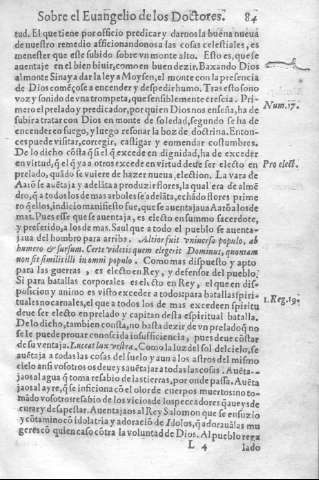 Sobre el Euangelio de los Doctores. 84
tud. El que tiene por officio predicar y darnos la buena nueua
de nuestro remedio afficionandonos a las cosas celestiales, es
menester que este subido sobre vn monte alto. Esto es, que se
auentaje en el bien biuir, como en buen dezir. Baxando Dios
al monte Sinay a dar la ley a Moysen, el monte con la presencia
de Dios comẽço se a encender y despedir humo. Tras esto sono
voz y sonido de vna trompeta, que sensiblemente crescia. Pri-
mero el prelado y predicador, por quien Dios nos enseña, ha de
subir a tratar con Dios en monte de soledad, segundo se ha de
encender en fuego, y luego resonar la boz de doctrina. Enton-
ces puede visitar, corregir, castigar y emendar costumbres.
Num. 17.
De lo dicho cõsta q̃ si el q̃ excede en dignidad, ha de exceder
en virtud, q̃ el q̃ ya a otros excede en virtud deue ser electo en
Pro elect.
prelado, quãdo se vuiere de hazer nueua, election. La vara de
Aarõ se auẽtaja y adelãta a produzir flores, la qual era de almẽ
dro, q̃ a todos los de mas arboles se adelãta, echãdo flores prime
ro q̃ ellos, indicio manifiesto fue, que se auentajaua Aarõ a los de
mas. Pues esse que se auentaja, es electo en summo sacerdote,
y preferido, a los de mas. Saul que a todo el pueblo se auenta-
jaua del hombro para arriba. Altior fuit vniuerso populo, ab
humero & sursum. Certe videtis quem elegerit Dominus, quoniam
non sit similis illi in omni populo. Como mas dispuesto y apto
para las guerras, es electo en Rey, y defensor del pueblo.
Si para batallas corporales es electo en Rey, el que en dis-
posicion y animo es visto exceder a todos para batallas spiri-
1. Reg. 19.
tuales no carnales, el que a todos los de mas exceden en spiritu
deue ser electo en prelado y capitan desta espiritual batalla.
De lo dicho, tambien consta, no basta dezir de vn prelado q̃ no
se le puede prouar conoscida insufficiencia, pues deue cõstar
de su ventaja. Luceat lux vestra. Como la luz del sol del cielo, se
auẽtaja a todas las cosas del suelo y aun a los astros del mismo
cielo ansi vosotros os deueys auẽtajar a todas las cosas. Auẽta-
jaos al agua q̃ toma resabio de las tierras, por onde passa. Auẽta
jaos al ayre, q̃ se inficiona cõ el olor de cuerpos muertos no to-
mãdo vosotros resabio de los vicios de los peccadores q̃ aueys de
curar y desapestar. Auentajaos al Rey Salomon que se ensuzio
y cõtamino cõ idolatria y adoracio de Idolos, q̃ adorauã las mu
geres cõ quien caso cõtra la voluntad de Dios. Al pueblo rega
L 4 lado